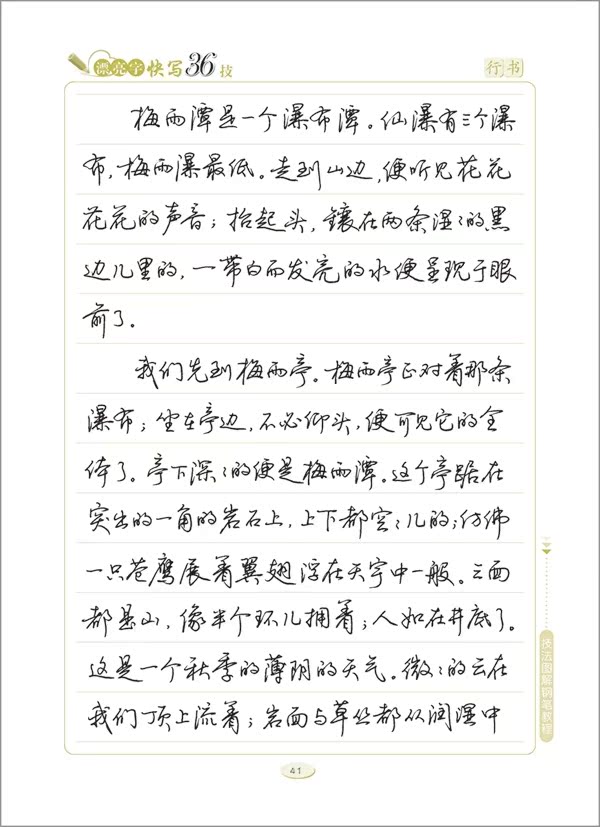 漂亮字快写36技
行书
梅雨潭是一个瀑布潭。仙瀑有三个瀑
布,梅雨瀑最低。走到山边,便听见花花
花花的声音;抬起头,镶在两条湿〻的黑
边儿里的,一带白而发亮的水便呈现于眼
前了。
我们先到梅雨亭。梅雨亭正对着那条
瀑布;坐在亭边,不必仰头,便可见它的全
体了。亭下深〻的便是梅雨潭。这个亭踞在
突出的一角的岩石上,上下都空〻儿的;仿佛
一只苍鹰展着翼翅浮在天宇中一般。三面
都是山,像半个环儿拥着;人如在井底了。
这是一个秋季的薄阴的天气。微〻的云在
我们顶上流着;岩面与草丛都从润湿中
技法图解钢笔教程
41